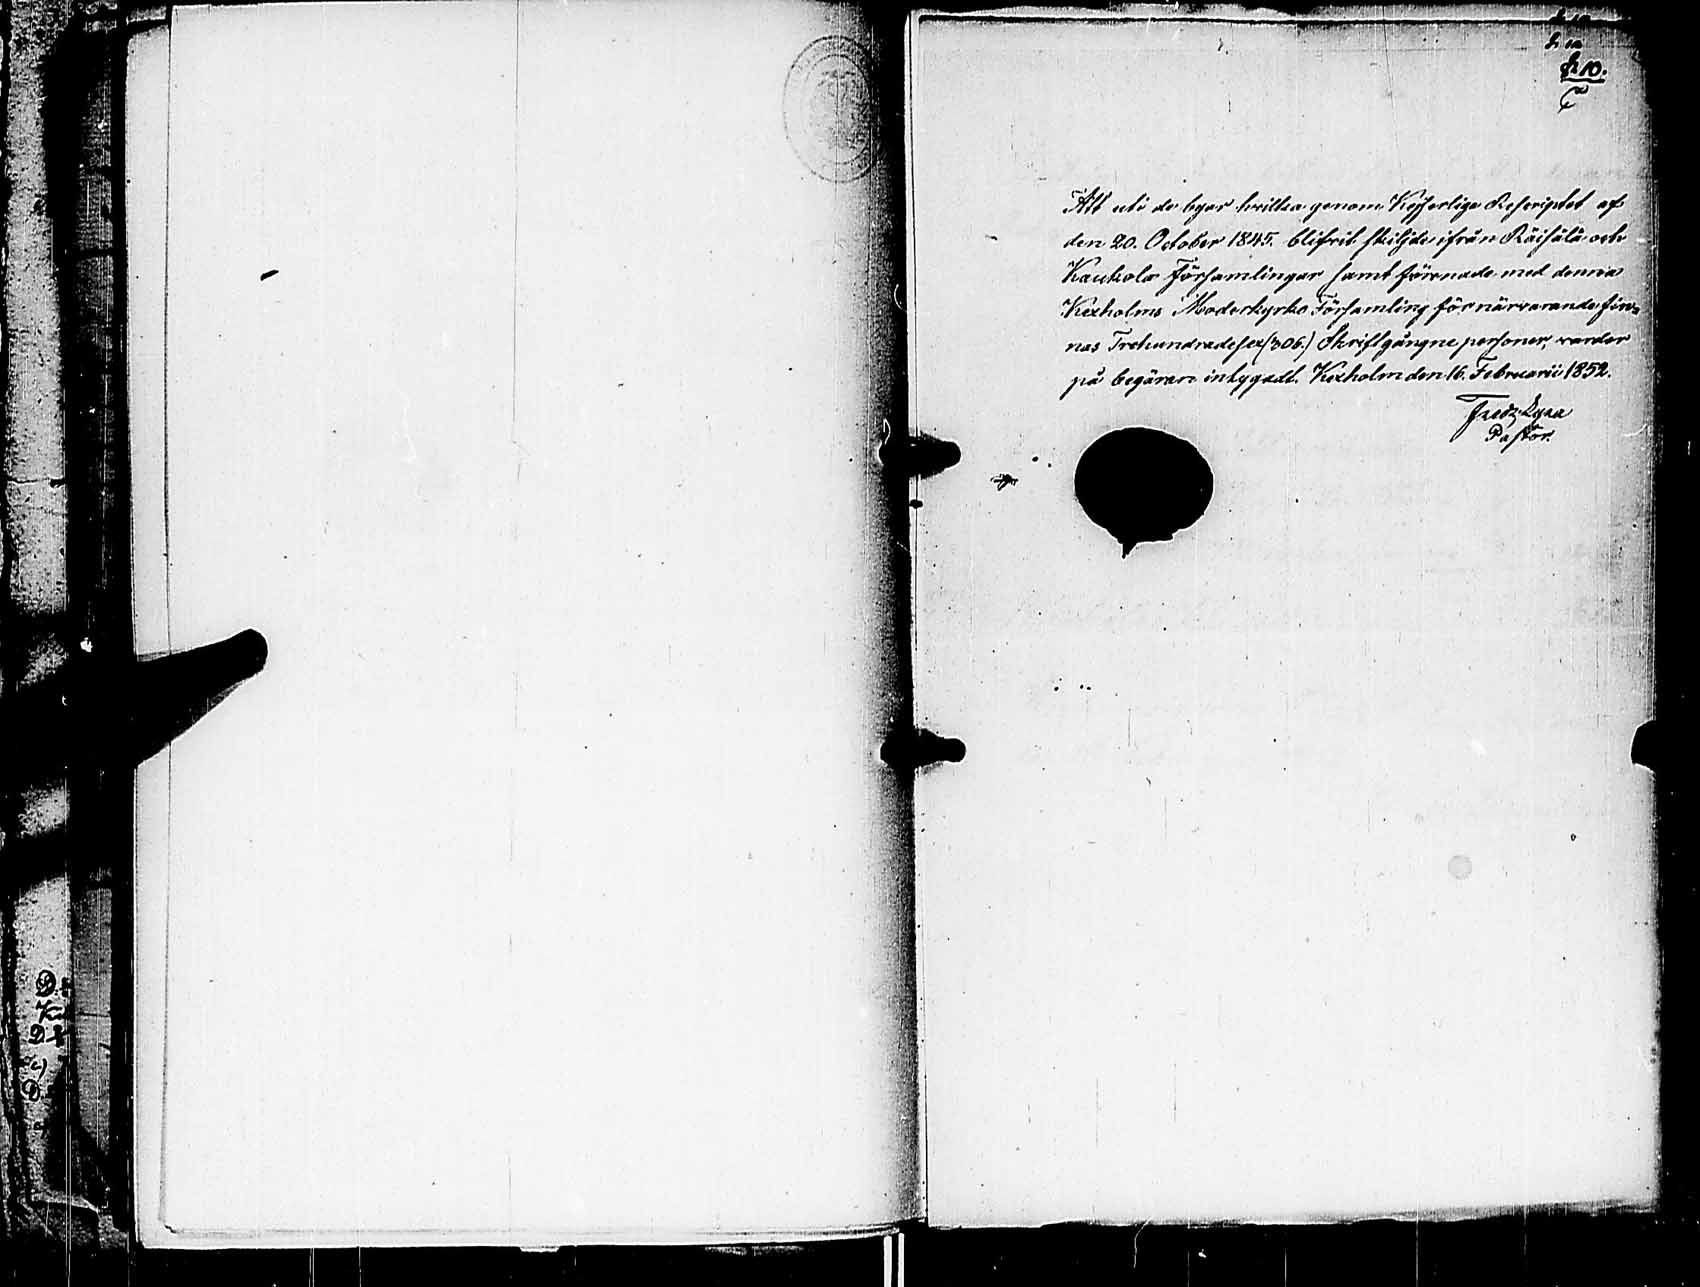 Att uti de byar hvilka genom Kejserliga Rescriptet af
den 20. October 1845. blifvit skiljde ifrån Räisälä och
Kaukola Församlingar samt förenade med denna
Kexholms Moderkyrko Församling för närvarande fin=
nas Trehundradesex (306.) Skriftgångne personer, varder
på begäran intygadt. Kexholm den 16. Februarii 1852.
Pastor.